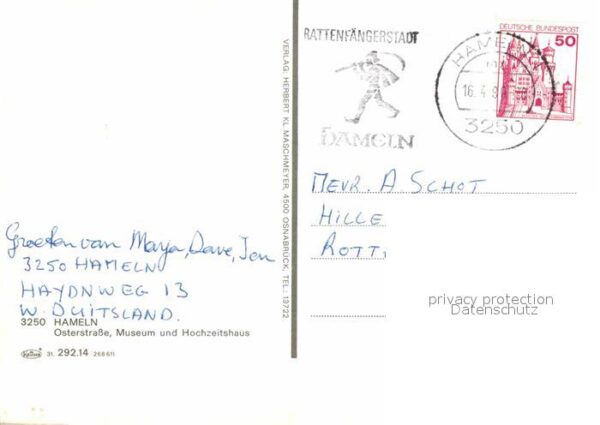 RATTENFÄNGERSTADT
HAMELN
HAMELN
16.4.8
3250
DEUTSCHE BUNDESPOST
50
VERLAG: HERBERT KL. MASCHMEYER, 4500 OSNABRÜCK, TEL.: 13722
MEVR. A SCHOT
HILLE
ROTT,
privacy protection
Datenschutz
Groeten van Marja, Dave, Jon
3250 HAMELN
HAYDNWEG 13
W. DUITSLAND.
3250 HAMELN
Osterstraße, Museum und Hochzeitshaus
31. 292.14 268611